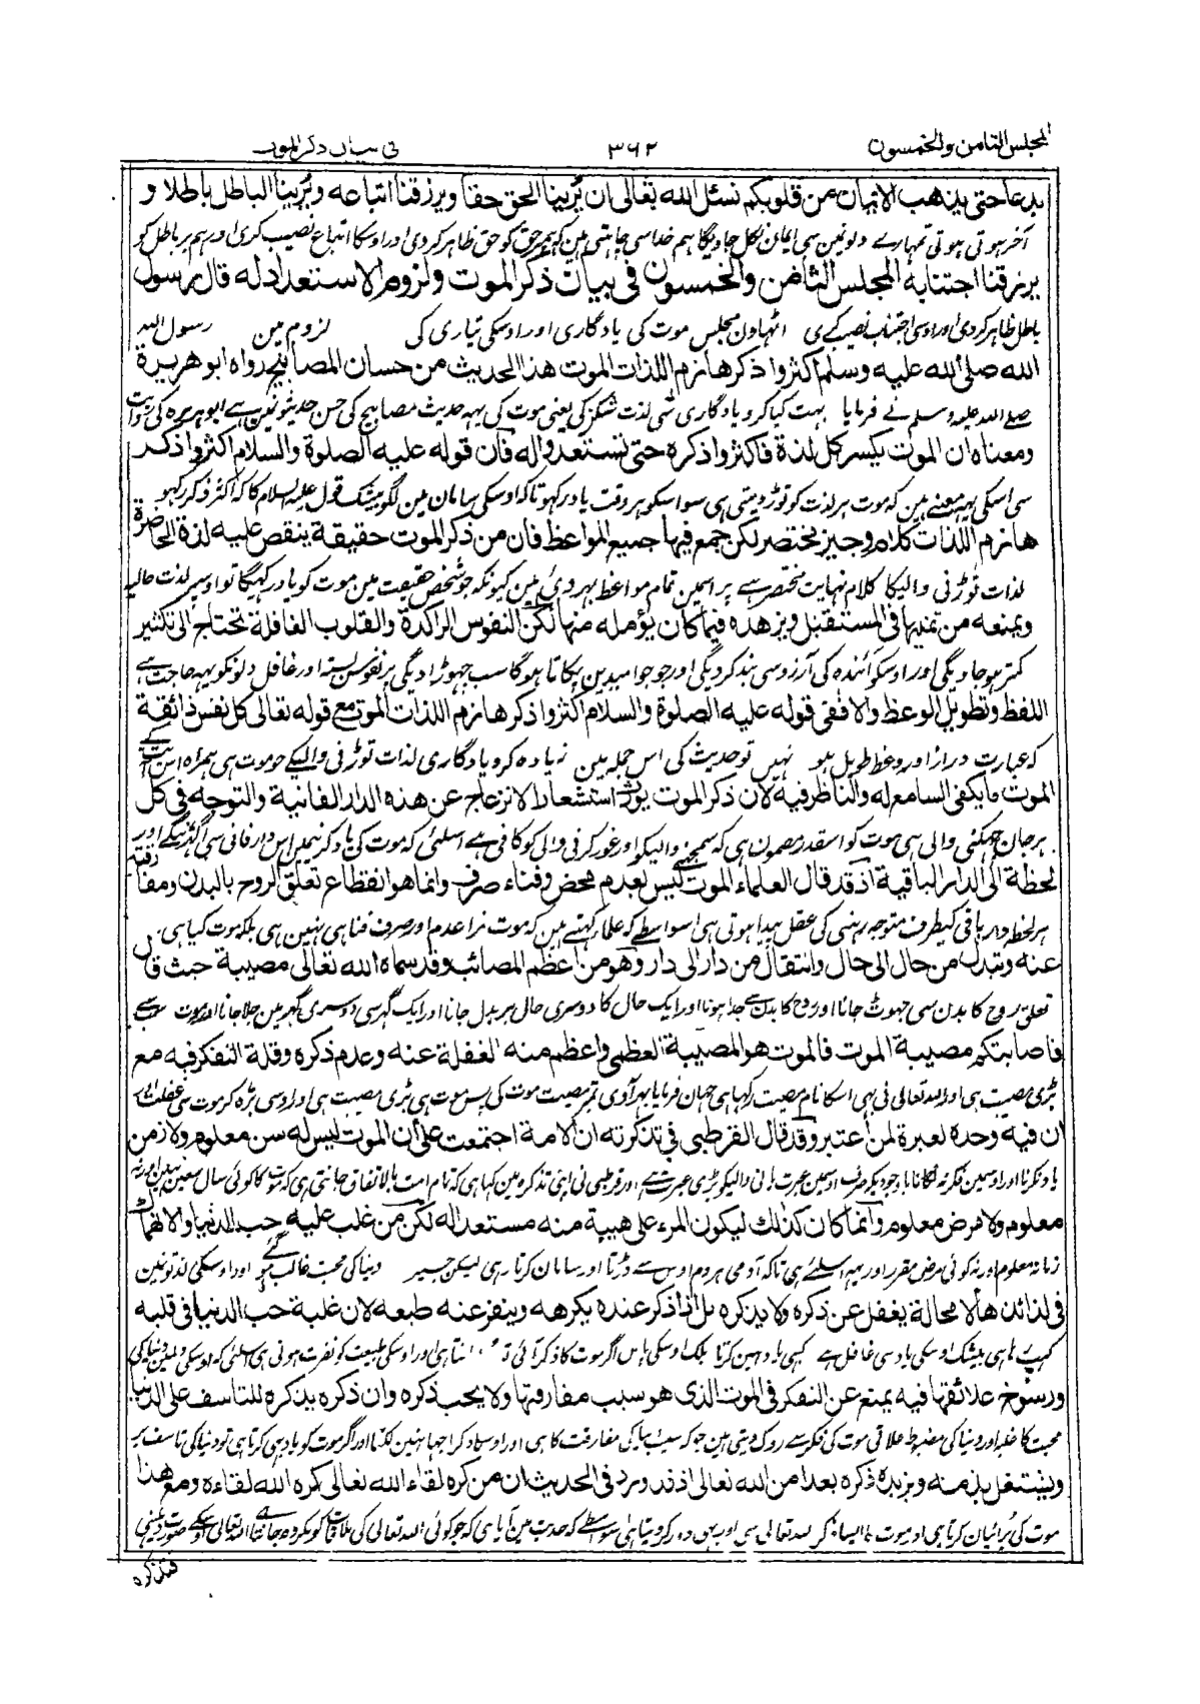 المجلس الثامن والخمسون ۳۶۲ فی بیان ذکر الموت
بدعا حتی یذهب الایمان من قلوبکم نسئل الله تعالی ان یرینا الحق حقا ویرزقنا اتباعه ویرینا الباطل باطلا و
آخر ہوتی ہوتی تمہارے دلونین سی ایمان نکل جاویگا ہم خدا سی چاہتی ہین کہ ہمپر حق کو حق ظاہر کر دی اور اوسکا اتباع نصیب کری اور ہم پر باطل کو
یرزقنا اجتنابه المجلس الثامن والخمسون فی بیان ذکر الموت ولزوم الاستعداد له قال رسول
باطل ظاہر کر دی اور اوسی اجتناب نصیب کے ری اٹہاون مجلس موت کی یادگاری اور اوسکی تیاری کی لزوم مین رسول اللہ
الله صلی الله علیه وسلم اکثروا ذکر هازم اللذات الموت هذا الحدیث من حسان المصابیح رواه ابو هریرة
صلے اللہ علیہ وسلم نے فرمایا بہت کیا کرو یادگاری شی لذت شکن کی یعنی موت کی یہہ حدیث مصابیح کی حسن حدیثونین ہے ابو ہریرہ کی روایت
ومعناه ان الموت یکسر کل لذة فاکثروا ذکره حتی تستعدوا له فان قوله علیه الصلوة والسلام اکثروا ذکر
سی اسکی یہہ معنے ہین کہ موت ہر لذت کو توڑ دیتی ہی سو اسکو ہر وقت یاد رکہو تاکہ اوسکی سامان مین لگو بیشک قول علیہ السلام کا کہ اکثر ذکر رکہو
هازم اللذات کلام وجیز مختصر لکن جمع فیها جمیع المواعظ فان من ذکر الموت حقیقة ینقص علیه لذة الحاضرة
لذات توڑنی والیکا کلام نہایت مختصر ہے پر اسمین تمام مواعظ بہر دئے ہین کیونکہ جو شخص حقیقت مین موت کو یاد رکہیگا تو اوسپر لذت حالیہ
ویمنعه من تمنیها فی المستقبل ویزهده فیما کان یؤمله منها لکن النفوس الراکدة والقلوب الغافلة تحتاج الی تکثیر
کمتر ہو جاویگی اور اوسکو آئندہ کی آرزو سی بند کر دیگی اور جو جو امیدین پکاتا ہوگا سب چہوڑا دیگی پر نفوس بستہ اور غافل دلونکو یہہ حاجت ہے
اللفظ وتطویل الوعظ والا ففی قوله علیه الصلوة والسلام اکثروا ذکر هازم اللذات الموت مع قوله تعالی کل نفس ذائقة
کہ عبارت دراز اور وعظ طویل ہو نہیں تو حدیث کی اس جملہ مین زیادہ کرو یادگاری لذات توڑنی والیکے جو موت ہی ہمراہ اس آیت کے
الموت ما یکفی السامع له والناظر فیه لان ذکر الموت یورث استشعار الانزعاج عن هذه الدار الفانیة والتوجه فی کل
ہر جان چکہنی والی ہی موت کو اسقدر مضمون ہی کہ سمجہنے والیکو اور غور کرنی والی کو کافی ہے اسلئی کہ موت کی یاد کرنیمین اس دار فانی سی اور
لحظة الی الدار الباقیة اذ قد قال العلماء الموت لیس بعدم محض وفناء صرف وانما هو انقطاع تعلق الروح بالبدن ومفارقته
ہر لحظہ دار باقی کیطرف متوجہ رہنی کی عقل پیدا ہوتی ہی اسواسطے کہ علما کہتے ہین کہ موت نرا عدم اور صرف فنا ہی نہین ہی بلکہ موت کیا ہی
عنه وتبدل من حال الی حال وانتقال من دار الی دار وهو من اعظم المصائب وقد سماه الله تعالی مصیبة حیث قال
تعلق روح کا بدن سی چہوٹ جانا اور روح کا بدن سے جدا ہونا اور ایک حال کا دوسری حال پر بدل جانا اور ایک گہر سی دوسری گہر مین چلا جانا اور موت سب سے
فاصابتکم مصیبة الموت فالموت هو المصیبة العظمی واعظم منه الغفلة عنه وعدم ذکره وقلة التفکر فیه مع
بڑی مصیبت ہی اور اللہ تعالی نی بہی اسکا نام مصیبت رکہا ہی جہان فرمایا پہر آوی تمپر مصیبت موت کی پس موت ہی بڑی مصیبت ہی اور اوسی بڑہ کر موت سی غفلت
ان فیه وحده لعبرة لمن اعتبر وقد قال القرطبی فی تذکرته ان الامة اجتمعت علی ان الموت لیس له سن معلوم ولا زمن
یاد نکرنا اور اوسین فکر نہ لگانا باوجودیکہ صرف اوسین عبرت پانی والیکو بڑی عبرت ہے اور قرطبی نی اپنی تذکرہ مین کہا ہی کہ تمام امت بالاتفاق جانتی ہی کہ موت کا کوئی سال معین نہین اور نہ
معلوم ولا مرض معلوم وانما کان کذلک لیکون المرء علی هیبة منه مستعدا له لکن من غلب علیه حب الدنیا والانهماک
زمانہ معلوم اور نہ کوئی مرض مقرر اور یہہ اسلئے ہی تاکہ آدمی ہر دم اوس سے ڈرتا اور سامان کرتا رہی لیکن جسپر دنیا کی محبت غالب ہو گئے اور اوسکی لذتونین
فی لذائذها لا محالة یغفل عن ذکره ولا یذکره بل اذا ذکر عنده یکرهه وینفر عنه طبعه لان غلبة حب الدنیا فی قلبه
کہپ رہا ہی بیشک اوسکی یاد سی غافل ہے کبہی یاد نہین کرتا بلکہ اوسکی پاس اگر موت کا ذکر آئی تو اور اوسکی طبیعت کو نفرت ہوتی ہی اسلئی کہ اوسکی دلمین دنیا کی
ورسوخ علائقها فیه یمنع عن التفکر فی الموت الذی هو سبب مفارقتها ولا یحب ذکره وان ذکره یذکره للتاسف علی الدنیا
محبت کا غلبہ اور دنیا کی مضبوط علاقی موت کی فکر سے روک دیتی ہین جو کہ سبب دنیا کی مفارقت کا ہی اور اوسکا ذکر اچہا نہین لگتا اور اگر موت کو یاد بہی کرتا ہی تو دنیا کی تاسف پر
ویشتغل بذمه ویزیده ذکره بعدا من الله تعالی اذ قد ورد فی الحدیث ان من کره لقاء الله تعالی کره الله لقاءه ومع هذا
موت کی برائیان کرتا ہی اور موت کا ایسا ذکر اللہ تعالی سی اور بہی دور کر دیتا ہی اسواسطے کہ حدیث مین آیا ہی کہ جو کوئی اللہ تعالی کی ملاقات کو مکروہ جانے اللہ تعالی
فتذکره